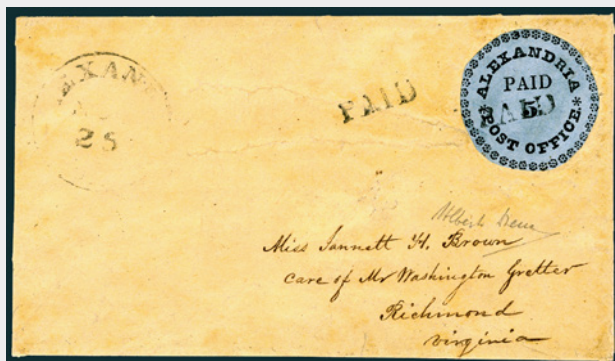 EXAN
25
PAID
ALEXANDRIA
PAID
5
PAID
* POST OFFICE *
Miss Jannett H. Brown
care of Mr Washington Gretter
Richmond
virginia